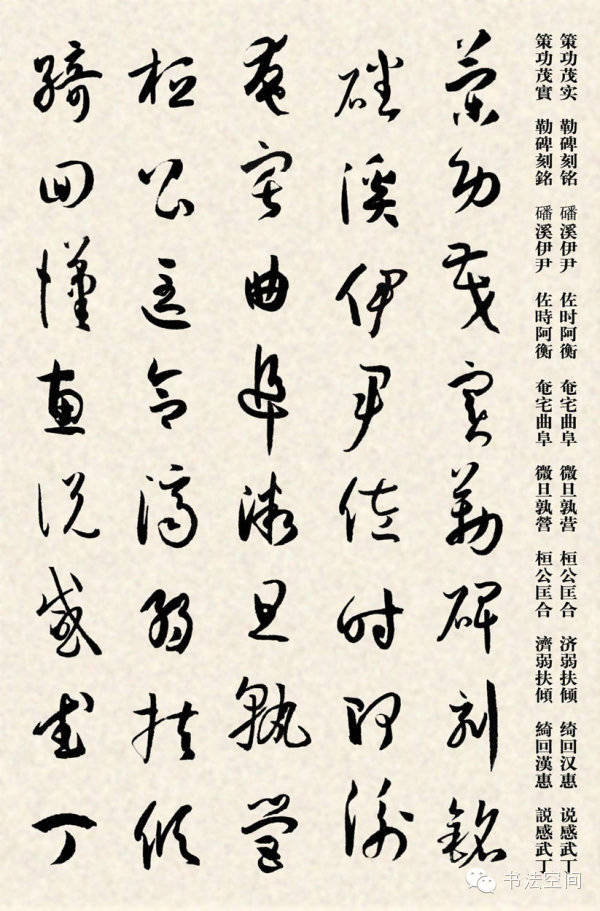 策功茂实 勒碑刻铭 磻溪伊尹 佐时阿衡 奄宅曲阜 微旦孰营 桓公匡合 济弱扶倾 绮回汉惠 说感武丁
策功茂實 勒碑刻銘 磻溪伊尹 佐時阿衡 奄宅曲阜 微旦孰營 桓公匡合 濟弱扶傾 綺回漢惠 説感武丁
策功茂實勒碑刻銘
磻溪伊尹佐時阿衡
奄宅曲阜微旦孰營
桓公匡合濟弱扶傾
綺回漢惠説感武丁
书法空间